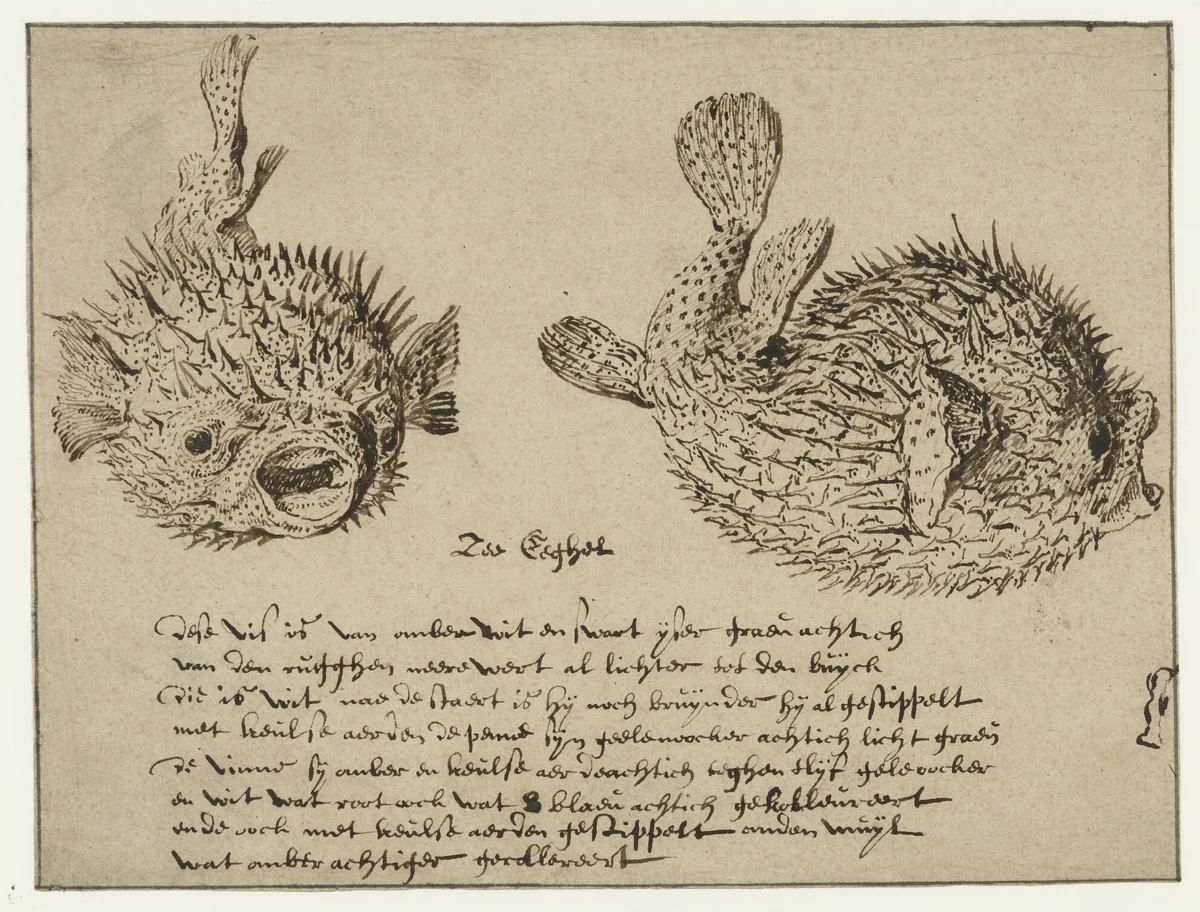 Zee Eeghel
Dese vis is van omber wit en swart yser graeu achtich
van den rugghen neerewert al lichter tot den buyck
Die is wit nae de staert is hy noch bruynder hy al gestippelt
met keulse aerden de penne syn geelenoocker achtich licht graeu
De vinne sy omber en keulse aerdeachtich teghen tlyf geleoocker
en wit wat root oock wat blaeu achtich gekolleureert
ende oock met keulse aerden gestippelt anden muyl
wat omber achtiger gecollereert